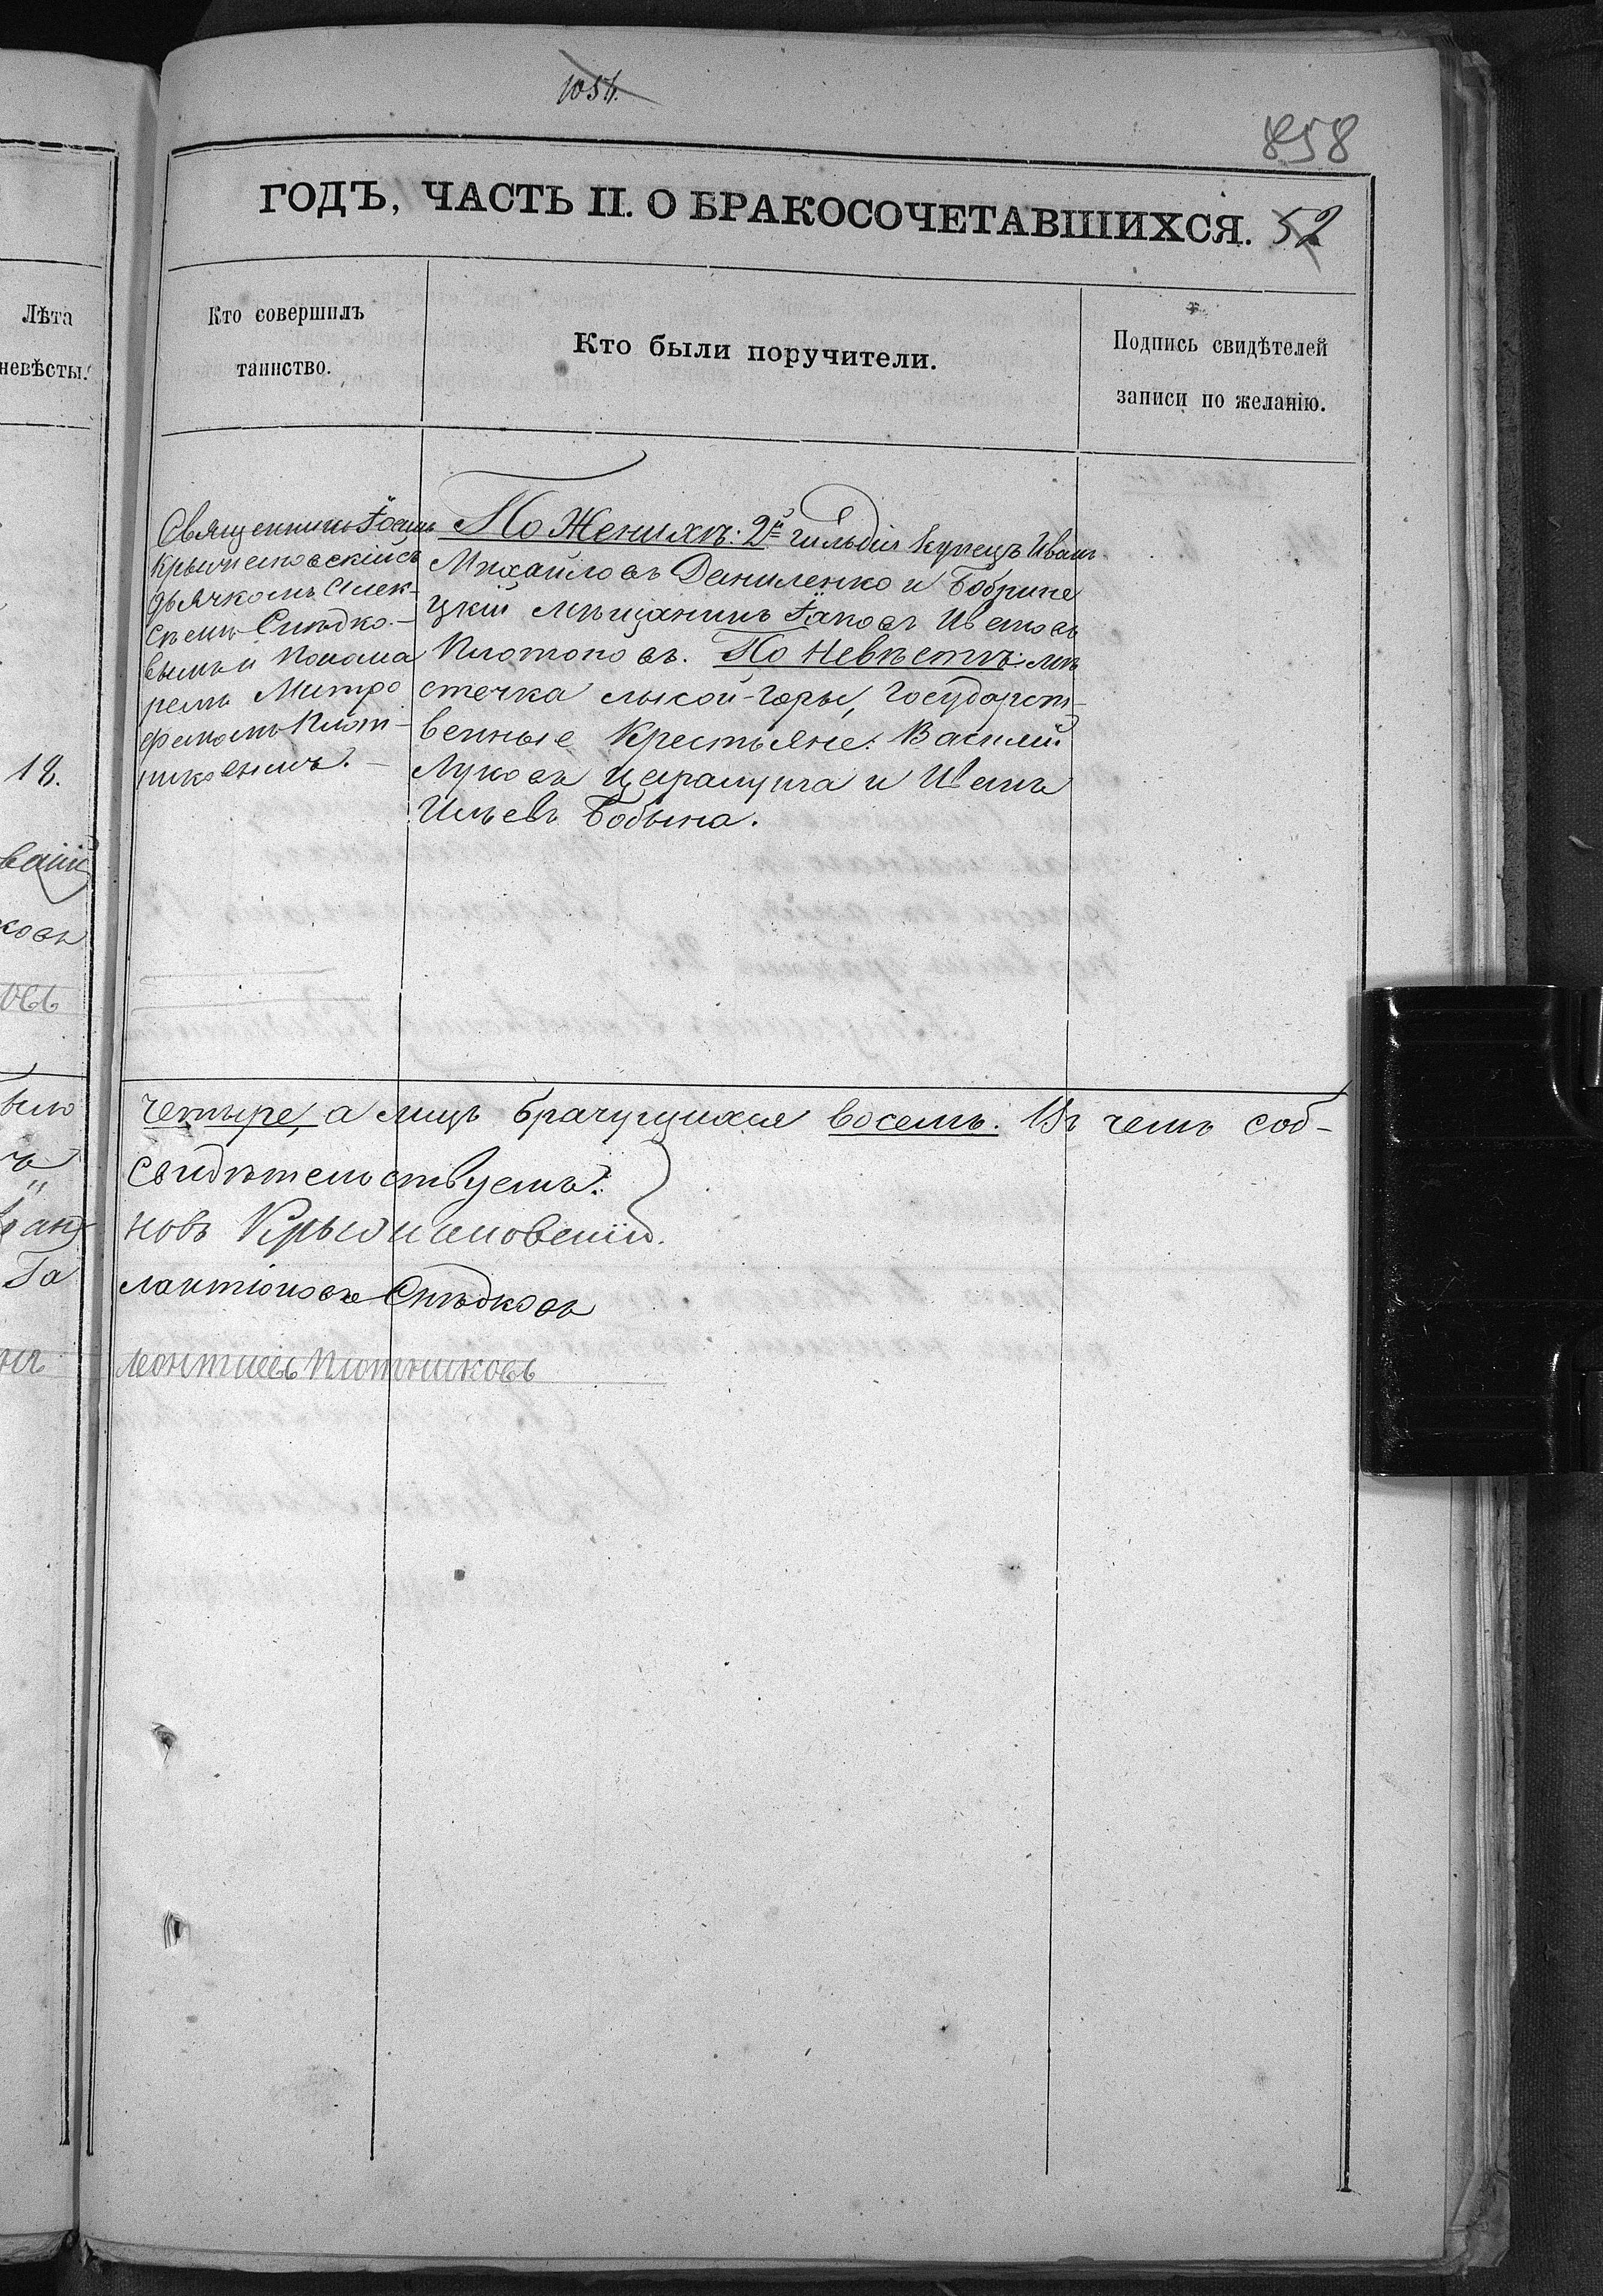 1056.
858
ГОДЪ, ЧАСТЬ II. О БРАКОСОЧЕТАВШИХСЯ. 52
Лѣта
невѣсты.
Кто совершилъ
таинство.
Кто были поручители.
Подпись свидѣтелей
записи по желанію.
Священникъ Іоаннъ
съ
дьячкомъ Алек-
сѣемъ Снѣдко-
вымъ и понома
ремъ Митро
фаномъ Плот-
никовымъ.
По Женихѣ: 2й гильдіи купецъ Иванъ
Михайловъ Даниленко и Бобрине
цкій мѣщанинъ Іаковъ Ивановъ
По Невѣстѣ: мѣ
стечка Лысой-Горы, Государст-
венные Крестьяне: Василій
Луковъ и Иванъ
Ильевъ Бобына.
18.
ковъ
четыре, а лицъ брачущихся восемь. Въ чемъ соб-
свидѣтельствуемъ:
новъ
лактіоновъ Снѣдковъ
Леонтіевъ Плотниковъ